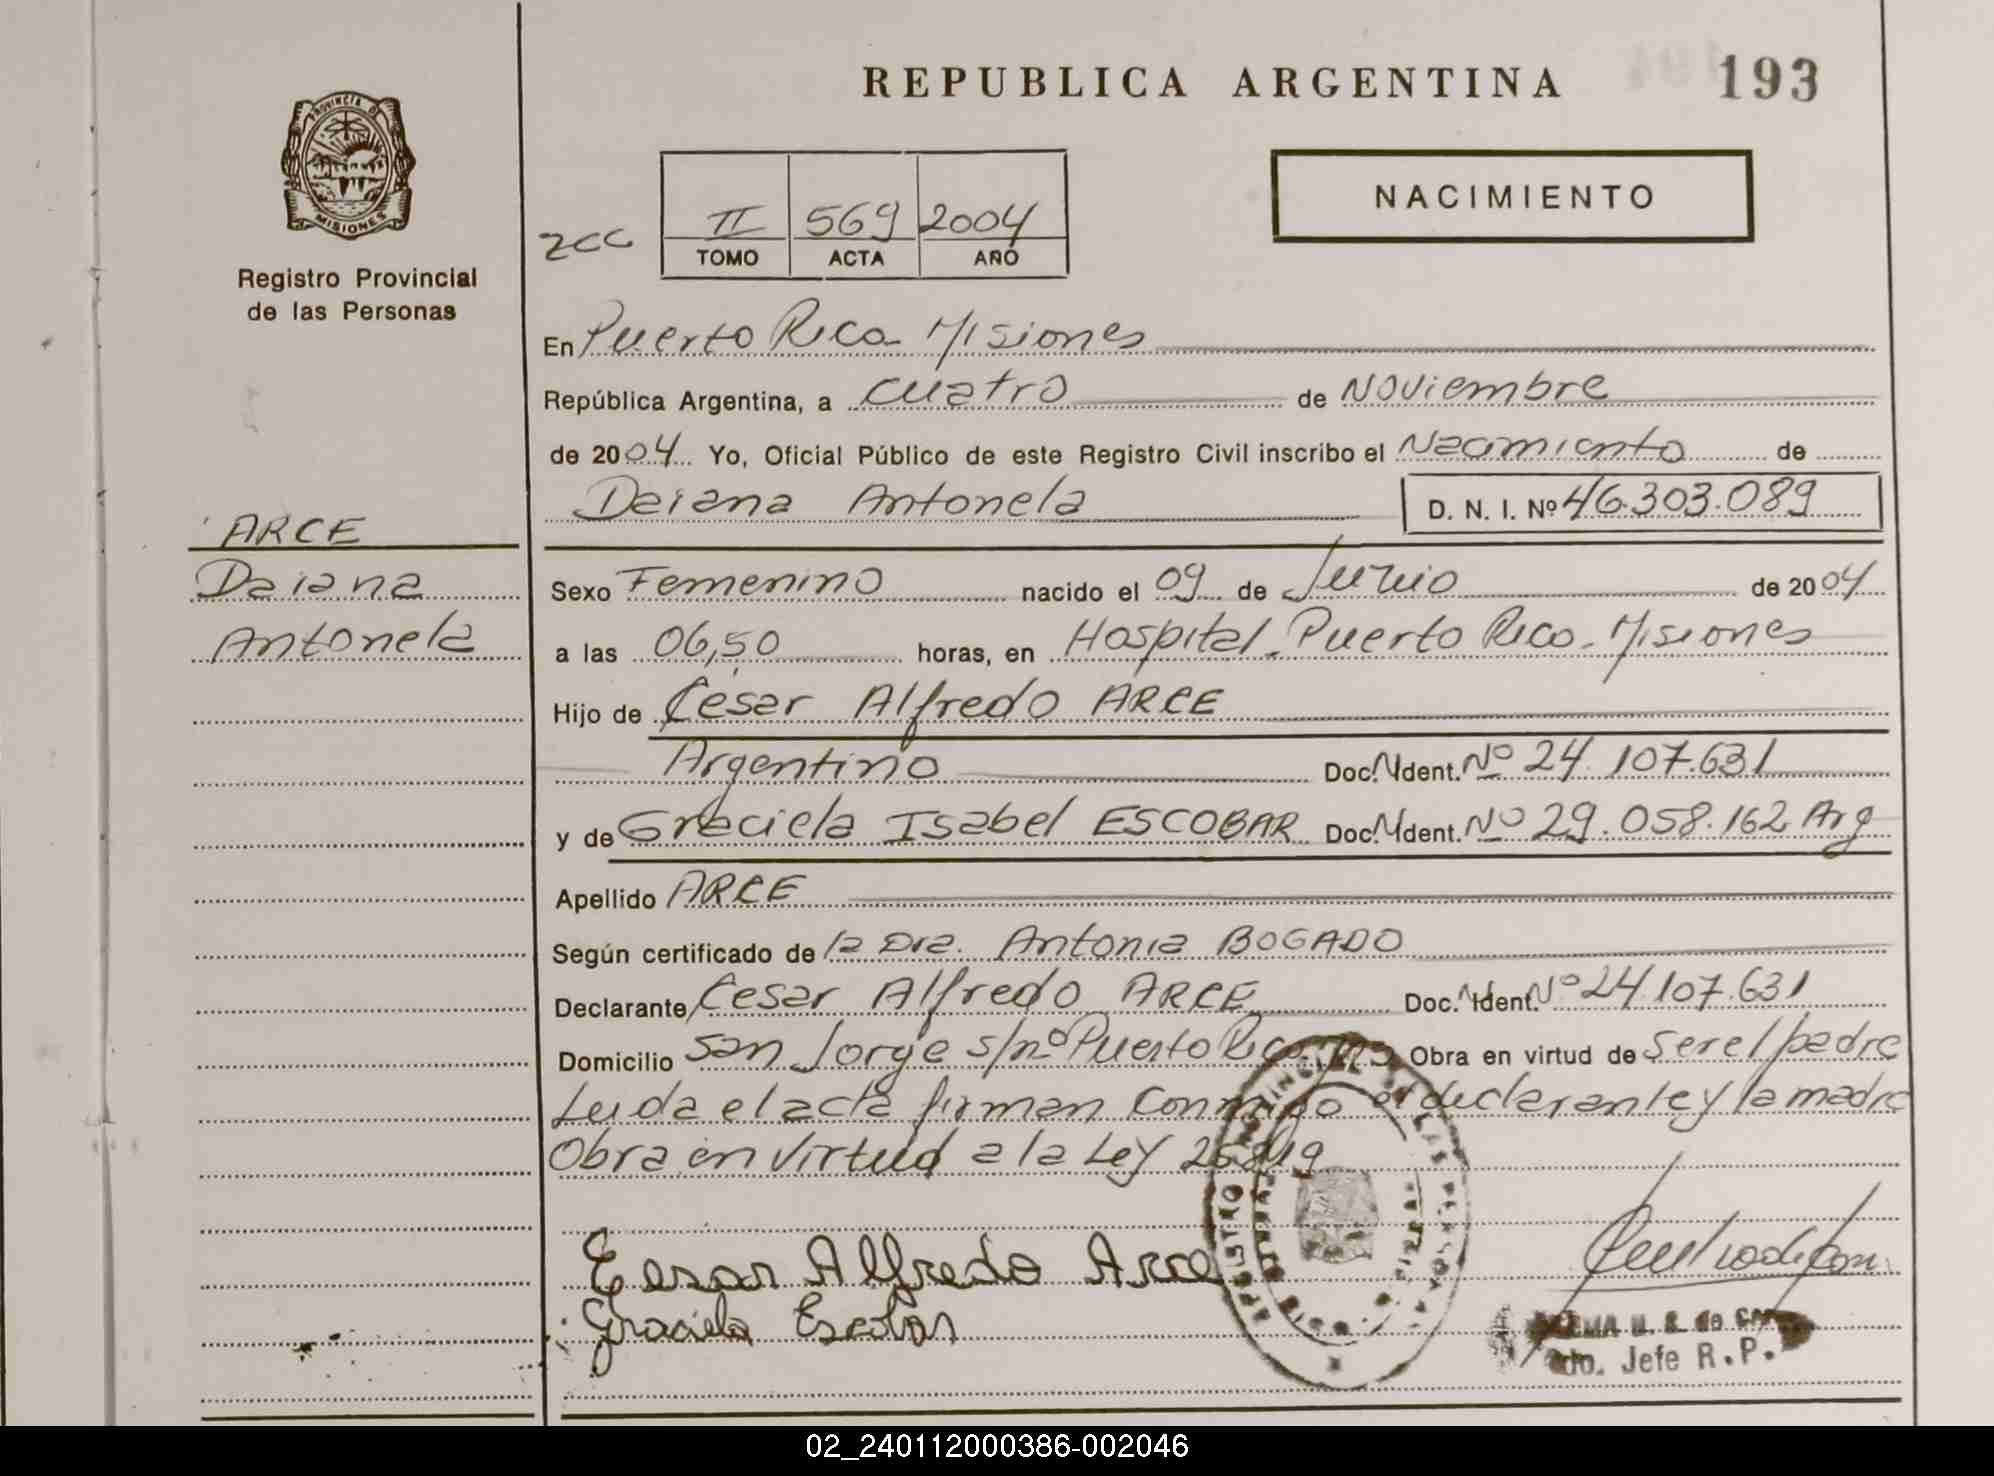 REPUBLICA ARGENTINA 193
PROVINCIA DE
MISIONES
Registro Provincial
de las Personas
NACIMIENTO
II 569 2004
TOMO ACTA AÑO
En Puerto Rico - Misiones
República Argentina, a cuatro de Noviembre
de 2004 Yo, Oficial Público de este Registro Civil inscribo el Nacimiento de
Daiana Antonela D. N. I. Nº 46.303.089
ARCE
Daiana
Antonela
Sexo Femenino nacido el 09 de Junio de 2004
a las 06,50 horas, en Hospital - Puerto Rico - Misiones
Hijo de César Alfredo ARCE
Argentino Doc. Ident. Nº 24.107.631
y de Graciela Isabel ESCOBAR Doc. Ident. Nº 29.058.162 Arg
Apellido ARCE
Según certificado de la Dra. Antonia BOGADO
Declarante César Alfredo ARCE Doc. Ident. Nº 24.107.631
Domicilio San Jorge s/nº Puerto Rico Obra en virtud de ser el padre
Leida el acta firman conmigo el declarante y la madre
Obra en virtud a la Ley
Cesar Alfredo Arce
Graciela Escobar
Jefe R.P.
02_240112000386-002046